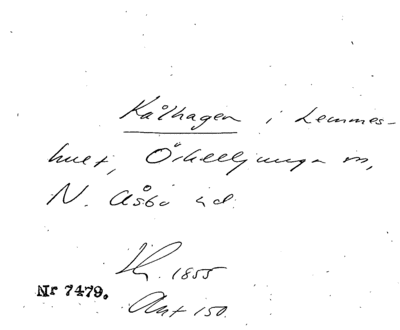 Kålhagen i Lemmes-
hult, Örkelljunga sn,
N. Åsbo hd.
Sk. 1855
Nr 7479.
Ant 150.